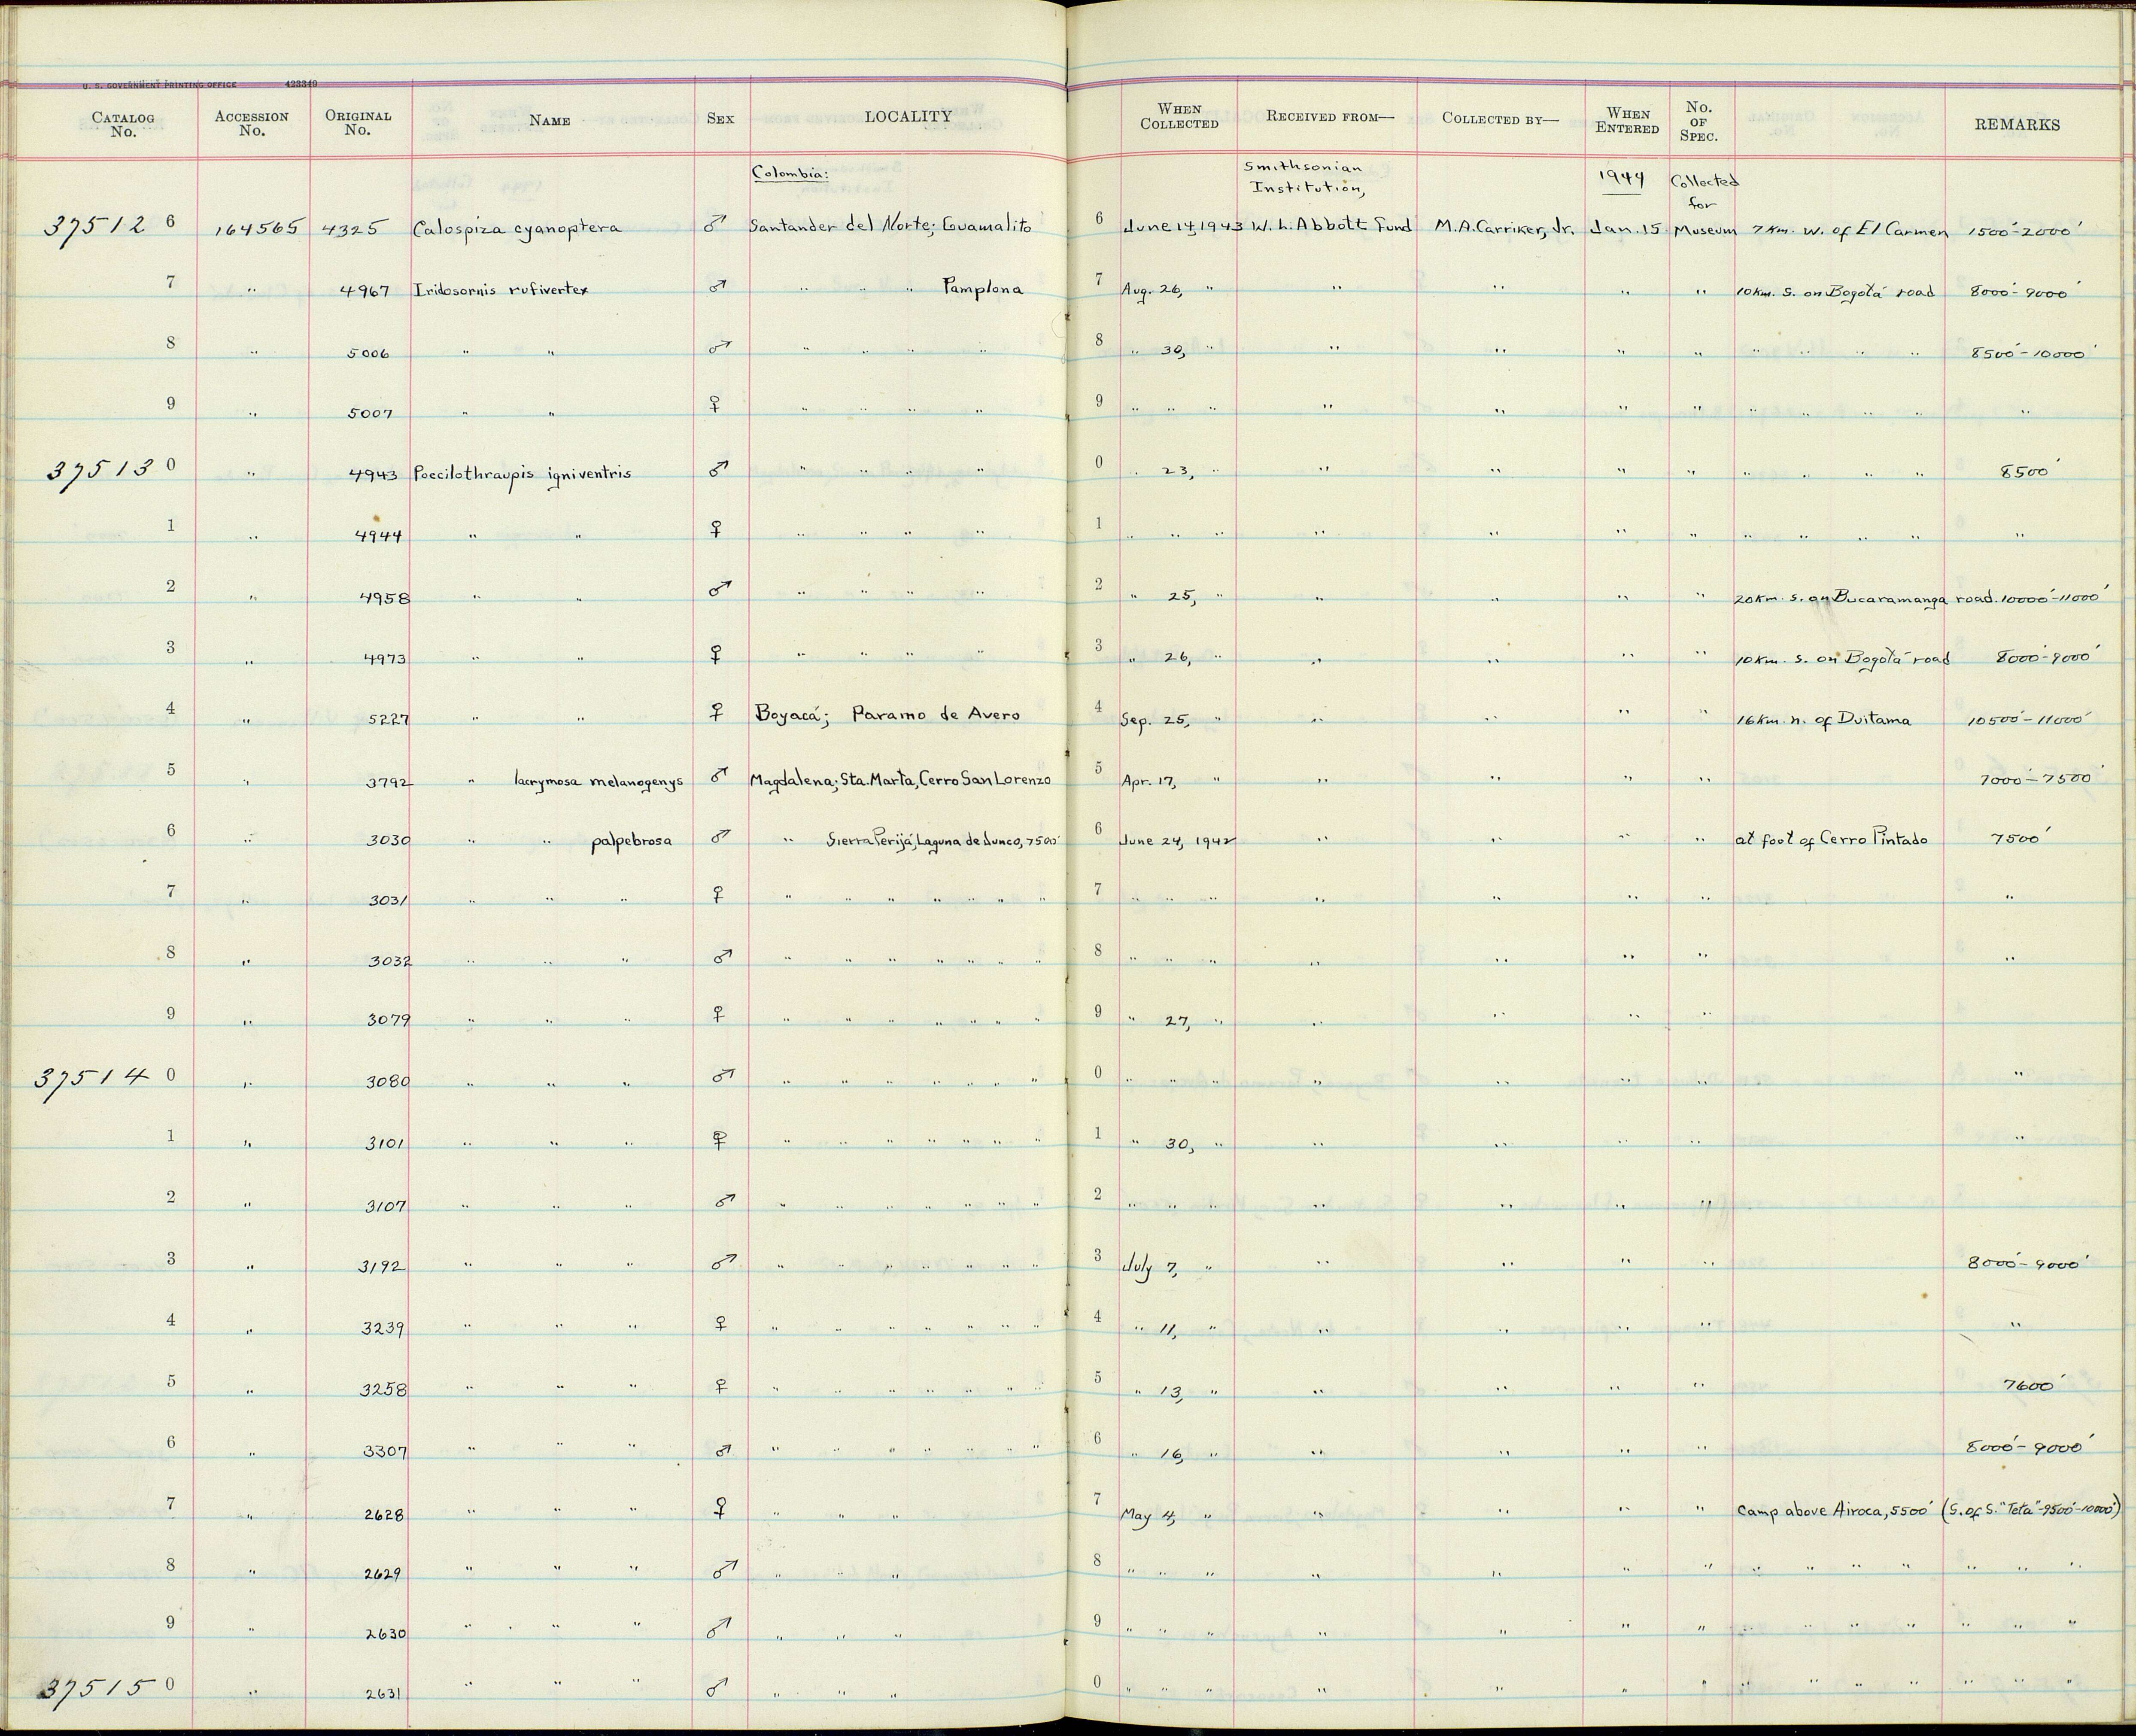 U. S. GOVERNMENT PRINTING OFFICE 423349
CATALOG No. ACCESSION No. ORIGINAL No. NAME SEX LOCALITY WHEN COLLECTED RECEIVED FROM— COLLECTED BY— WHEN ENTERED No. OF SPEC. REMARKS
Colombia: Smithsonian Institution, 1944 Collected for
37512 6 164565 4325 Calospiza cyanoptera ♂ Santander del Norte; Guamalito 6 June 14, 1943 W. L. Abbott Fund M.A. Carriker, Jr. Jan. 15 Museum 7 Km. W. of El Carmen 1500'-2000'
7 " 4967 Iridosornis rufivertex ♂ " " " Pamplona 7 Aug. 26, " " " " " 10 Km. S. on Bogotá road 8000'-9000'
8 " 5006 " " ♂ " " " " 8 " 30, " " " " " " " " " 8500'-10000'
9 " 5007 " " ♀ " " " " 9 " " " " " " " " " " " "
37513 0 " 4943 Poecilothraupis igniventris ♂ " " " " 0 " 23, " " " " " " " " " 8500'
1 " 4944 " " ♀ " " " " 1 " " " " " " " " " " " "
2 " 4958 " " ♂ " " " " 2 " 25, " " " " " 20 Km. S. on Bucaramanga road. 10000'-11000'
3 " 4973 " " ♀ " " " " 3 " 26, " " " " " 10 Km. S. on Bogotá road 8000'-9000'
4 " 5227 " " ♀ Boyacá; Paramo de Avero 4 Sep. 25, " " " " " 16 Km. n. of Duitama 10500'-11000'
5 " 3792 " lacrymosa melanogenys ♂ Magdalena; Sta. Marta, Cerro San Lorenzo 5 Apr. 17, " " " " " 7000'-7500'
6 " 3030 " " palpebrosa ♂ " Sierra Perijá, Laguna de Junco, 7500' 6 June 24, 1942 " " " " at foot of Cerro Pintado 7500'
7 " 3031 " " " ♀ " " " " " " " 7 " " " " " " " "
8 " 3032 " " " ♂ " " " " " " " 8 " " " " " " " "
9 " 3079 " " " ♀ " " " " " " " 9 " 27, " " " " "
37514 0 " 3080 " " " ♂ " " " " " " " 0 " " " " " " " "
1 " 3101 " " " ♀ " " " " " " " 1 " 30, " " " " " "
2 " 3107 " " " ♂ " " " " " " " 2 " " " " " " "
3 " 3192 " " " ♂ " " " " " " " 3 July 7, " " " " " 8000'-9000'
4 " 3239 " " " ♀ " " " " " " " 4 " 11, " " " " " "
5 " 3258 " " " ♀ " " " " " " " 5 " 13, " " " " " 7600'
6 " 3307 " " " ♂ " " " " " " " 6 " 16, " " " " " 8000'-9000'
7 " 2628 " " " ♀ " " " 7 May 4, " " " " " Camp above Airoca, 5500' (S. of S. "Teta"-9500'-10000')
8 " 2629 " " " ♂ " " " 8 " " " " " " " " " " " " " "
9 " 2630 " " " ♂ " " " 9 " " " " " " " " " " " " " "
37515 0 " 2631 " " " ♂ " " " 0 " " " " " " " " " " " " " "